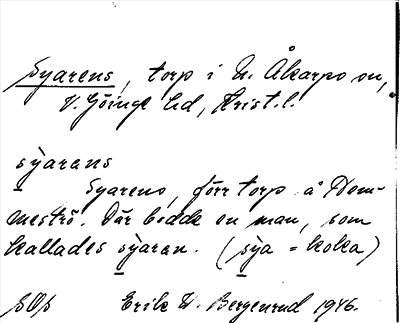 Syarens, torp i N. Åkarps sn,
V. Göinge hd, Krist. l.
sỳarans
Syarens, förr torp å Dem-
meströ. Där bodde en man, som
kallades sỳaran. (sỳa = koka)
Erik W. Bergenrud 1946.